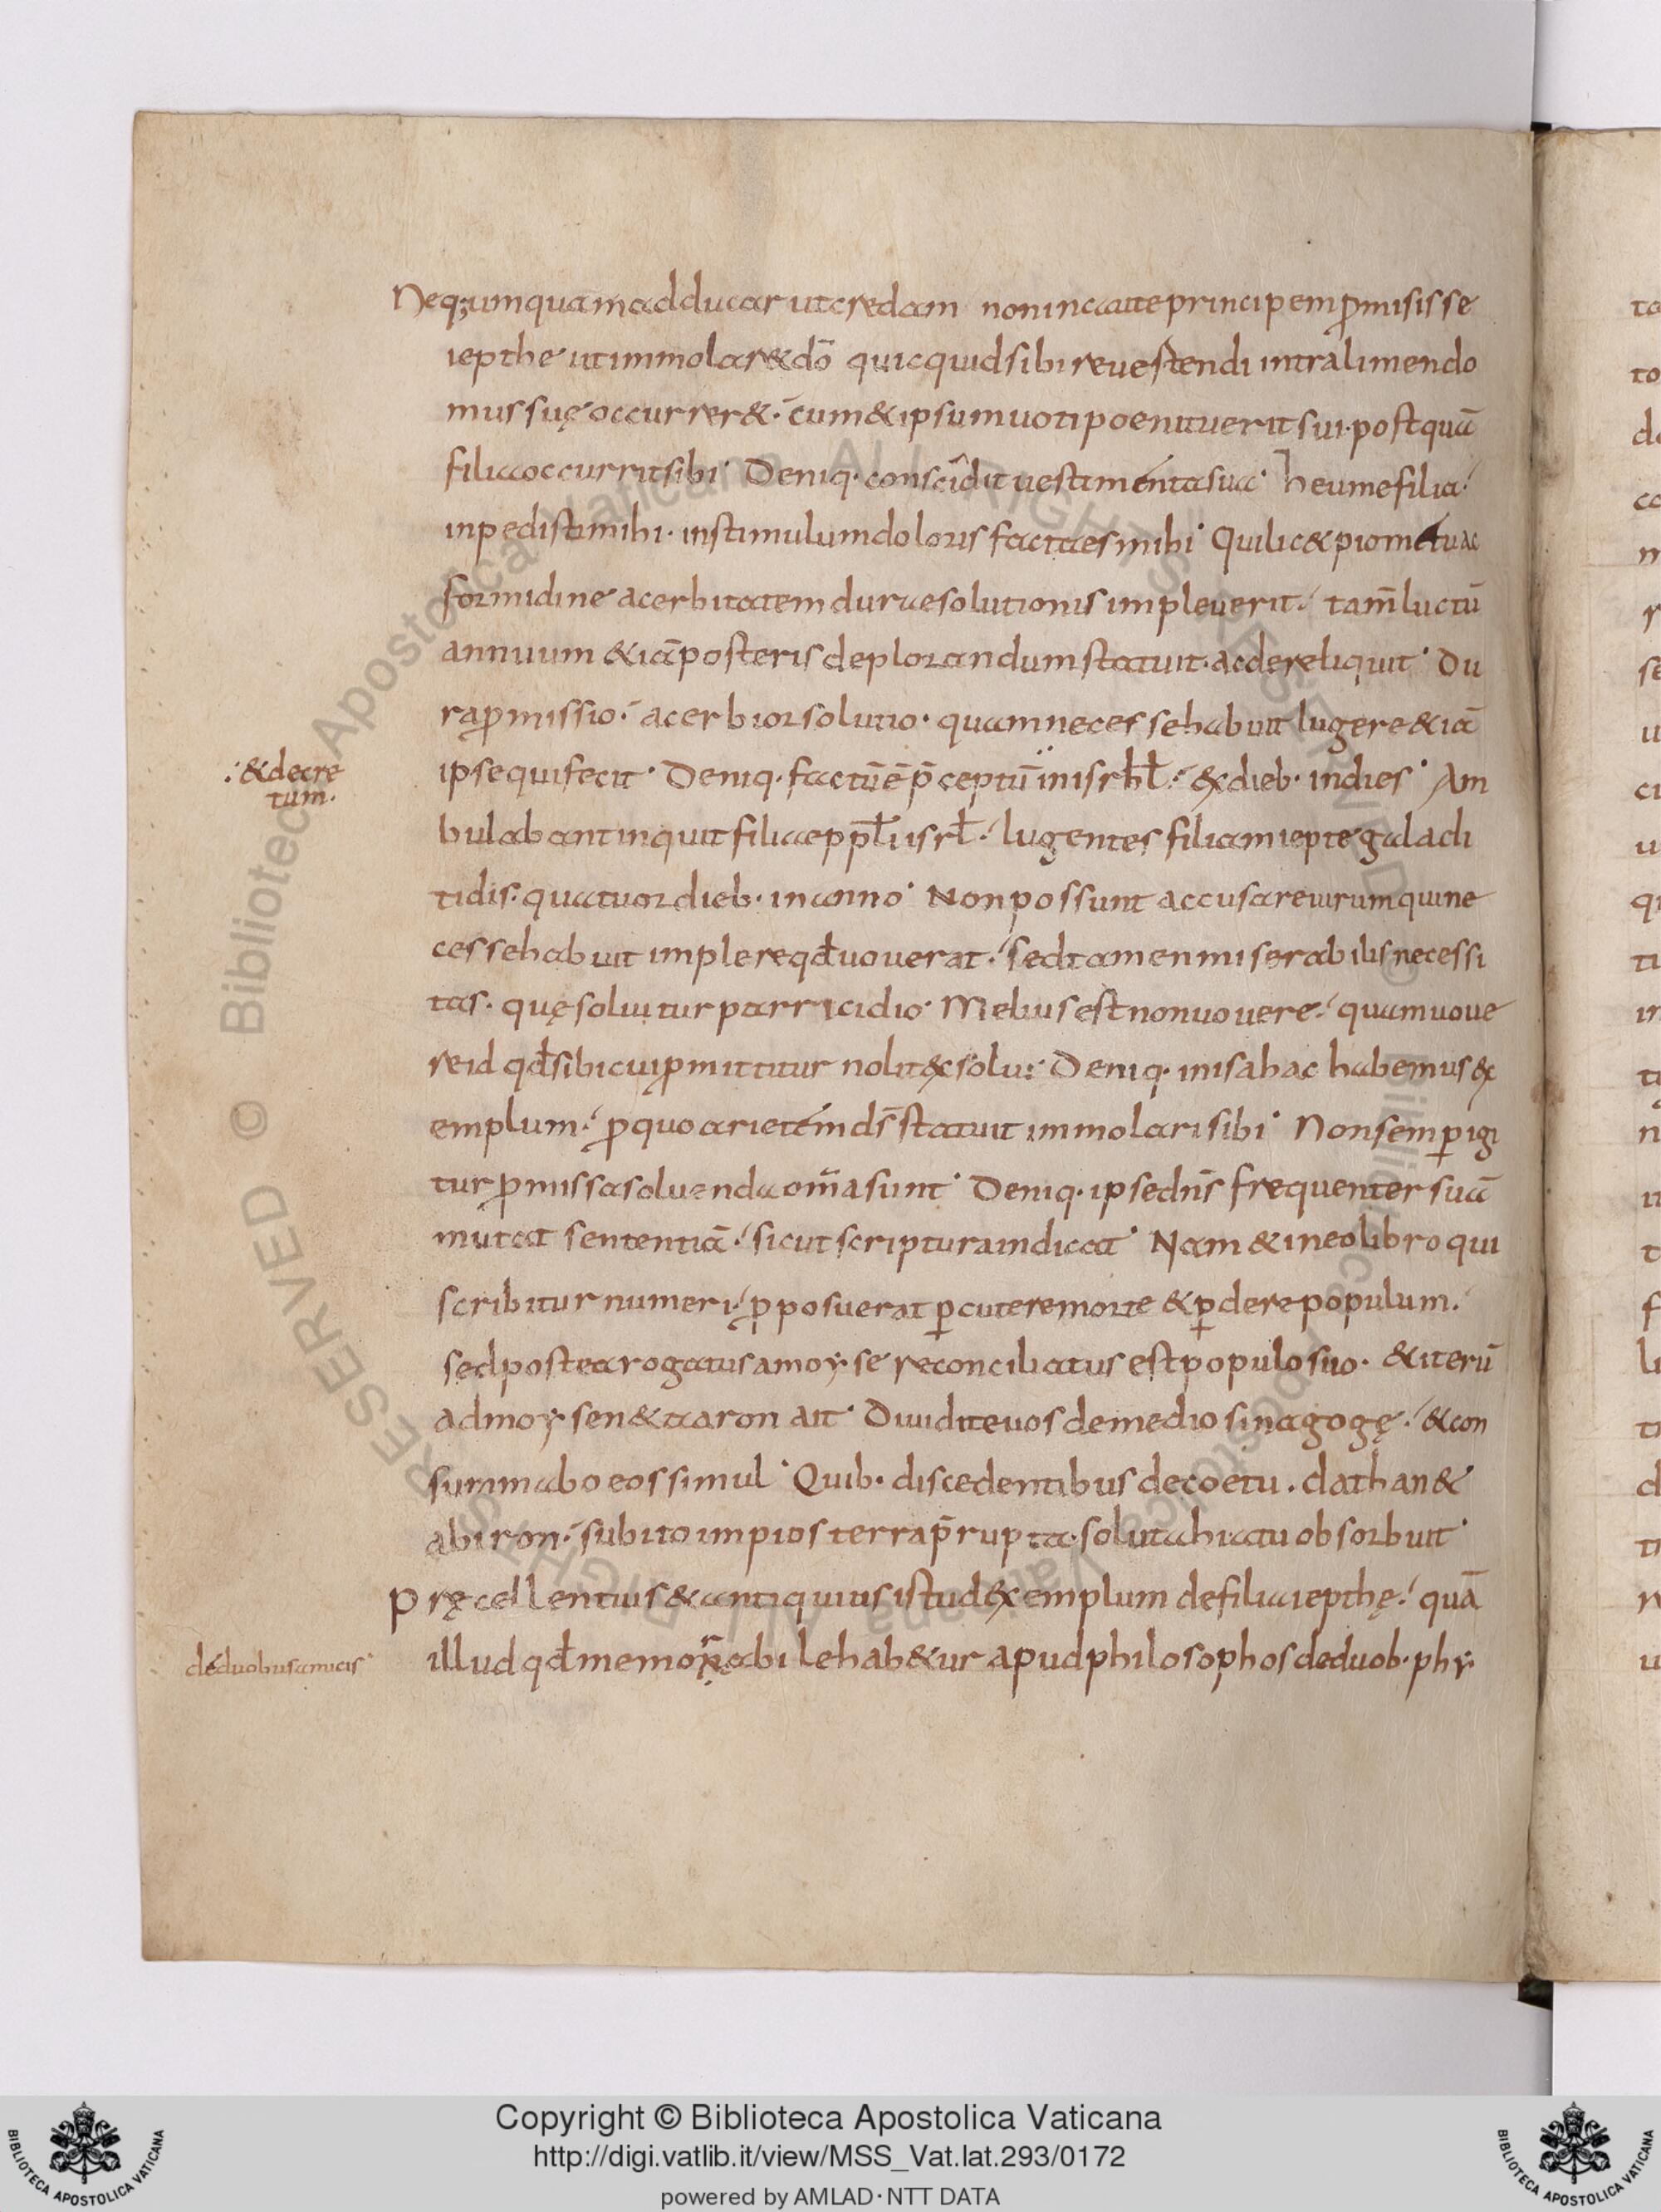 Neq; umquam adducar ut credam non incaute principem ꝓmisisse
iepthe ut immolar& dō quicquid sibi reuertendi intra limen do
mus suę occurrer&. cum & ipsum uoti poenituerit sui. postquā
filia occurrit sibi. Deniq. conscidit uestimenta sua. heu me filia.
inpedisti mihi. in stimulum doloris facta es mihi. Qui lic& pio metu ac
formidine acerbitatem durae solutionis impleuerit. tam̄ luctū
annuum &iā posteris deplorandum statuit. ac dereliquit. Du
ra ꝓmissio. acerbior solutio. quam necesse habuit lugere &iā
:&decre
tum.
ipse qui fecit. Deniq. factū ē p̄ceptū in isrhł. ex dieb. in dies. Am
bulabant inquit filiae ppłi isrł. lugentes filiam iepte galadi
tidis. quatuor dieb. in anno. Non possunt accusare uirum qui ne
cesse habuit implere qđ uouerat. sed tamen miserabilis necessi
tas. quę soluitur parricidio. Melius est non uouere. quam uoue
re id qđ sibi cui ꝓmittitur nolit exsolui. Deniq. in isahac habemus ex
emplum. ꝓ quo arietem ds̄ statuit immolari sibi. Non semꝑ igi
tur ꝓmissa soluenda om̄a sunt. Deniq. ipse dn̄s frequenter suā
mutat sententiā. sicut scriptura indicat. Nam & in eo libro qui
scribitur numeri. ꝓposuerat ꝑcutere morte & ꝑdere populum.
sed postea rogatus a moyse reconciliatus est populo suo. & iterū
ad moysen & aaron ait. Diuidite uos de medio sinagogę. & con
summabo eos simul. Quib. discedentibus de coetu. dathan &
abiron. subito impios terra p̄rupta. soluta hiatu obsorbuit.
Pręcellentius & antiquius istud exemplum de filia iepthę. quā
de duobus amicis
illud qđ memorabile hab&ur apud philosophos de duob. phy
Copyright © Biblioteca Apostolica Vaticana
http://digi.vatlib.it/view/MSS_Vat.lat.293/0172
powered by AMLAD·NTT DATA